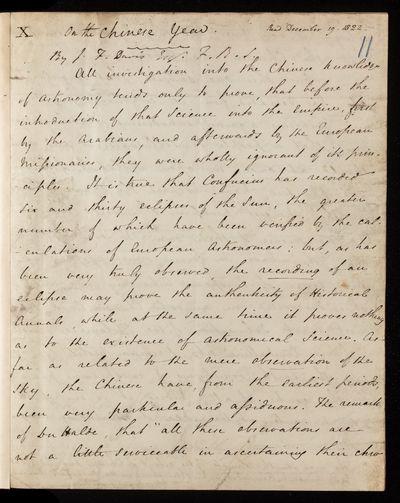 X On the Chinese Year. Read December 19. 1822.
11
By J. F. Davis Esqr. F.R.S.
All investigation into the Chinese knowledge
of Astronomy tends only to prove, that before the
introduction of that Science into the Empire, first
by the Arabians, and afterwards by the European
Missionaries, they were wholly ignorant of its prin-
ciples. It is true that Confucius has recorded
six and thirty eclipses of the Sun, the greater
number of which have been verified by the cal-
-culations of European Astronomers: but, as has
been very truly observed, the recording of an
eclipse may prove the authenticity of Historical
Annals, while at the same time it proves nothing
as to the existence of astronomical Science. As
far as related to the mere observation of the
sky, the Chinese have, from the earliest periods,
been very particular and assiduous. The remark
of Du Halde that "all these observations are
not a little serviceable in ascertaining their chro-